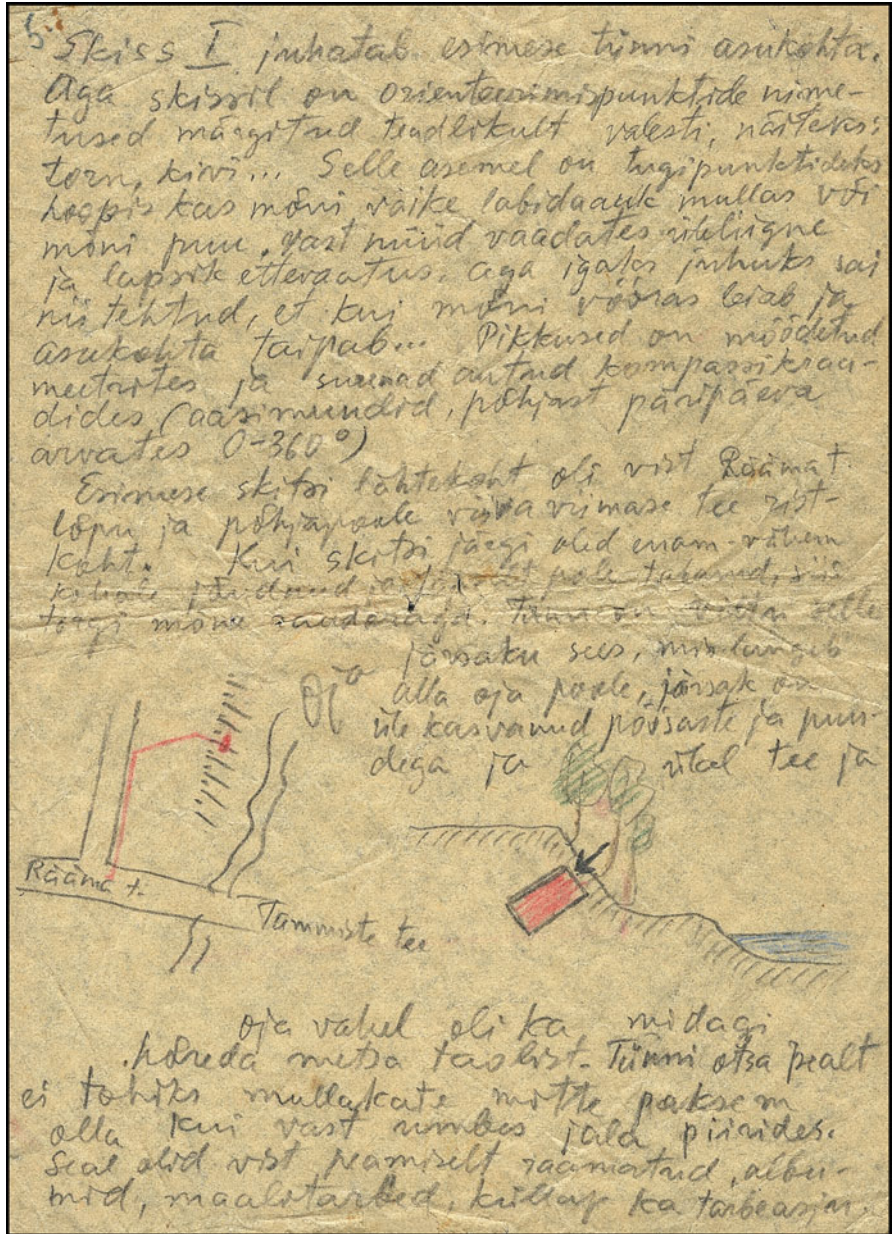 5.
Skiss I juhatab esimese tünni asukohta.
Aga skissil on orienteerimispunktide nime-
tused märgitud teadlikult valesti, näiteks:
torn, kivi... Selle asemel on tugipunktideks
hoopis kas mõni väike labidaauk mullas või
mõni puu, vast nüüd vaadates üleliigne
ja lapsik ettevaatus. Aga igaks juhuks sai
nii tehtud, et kui mõni võõras leiab ja
asukohta taipab... Pikkused on mõõdetud
meetrites ja suunad antud kompassikraa-
dides (aasimuudid, põhjast päripäeva
arvates 0-360°)
Esimese skitsi lähtekoht oli vist Rääma t.
lõpu ja põhjapoole viiva viimase tee rist-
koht. Kui skitsi järgi oled enam-vähem
kohale jõudnud ja pole tabanud, siis
torgi mõne raudoraga. Tünn on viltu selle
järsaku sees, mis langeb
alla oja poole, järsak on
üle kasvanud põõsaste ja puu-
dega ja ülal tee ja
Oja
Rääma t.
Tammiste tee
oja vahel oli ka midagi
hõreda metsa taolist. Tünni otsa pealt
ei tohiks mullakate mitte paksem
olla kui vast umbes jala piirides.
Seal olid vist peamiselt raamatud, albu-
mid, maalitarbed, küllap ka tarbeasju.